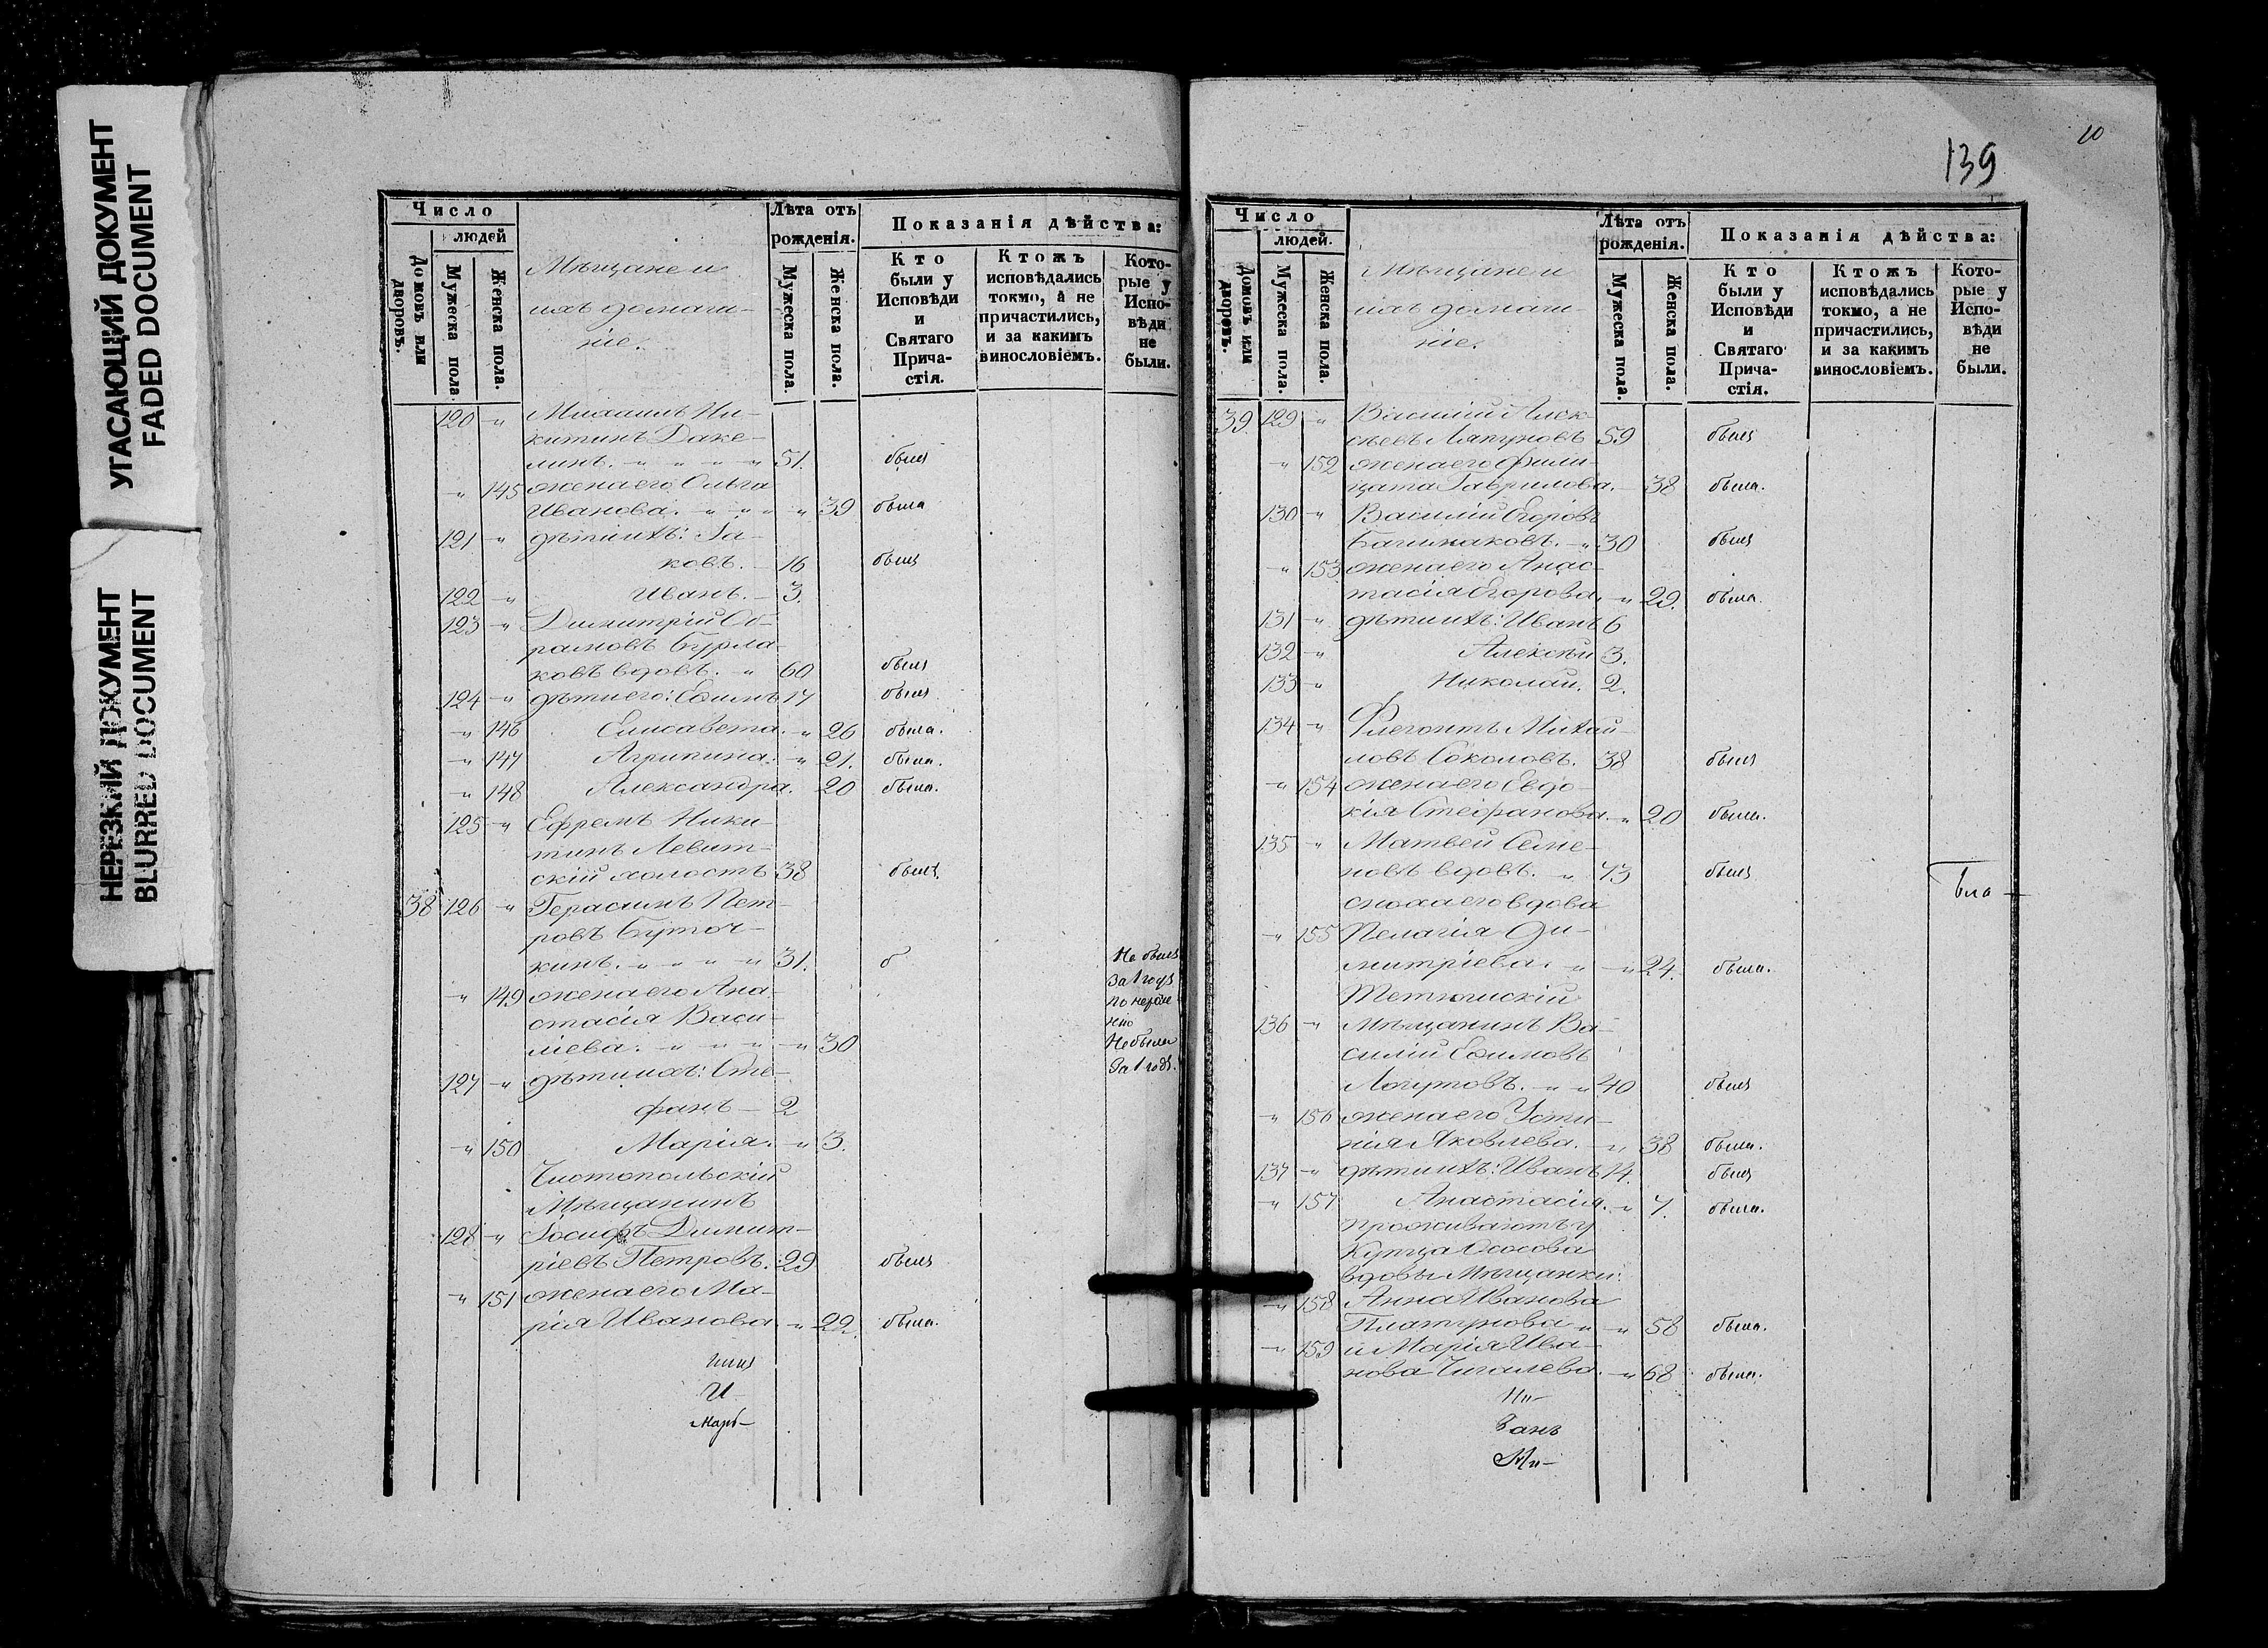 УГАСАЮЩИЙ ДОКУМЕНТ
FADED DOCUMENT
НЕРЕЗКИЙ ДОКУМЕНТ
BLURRED DOCUMENT
Число
людей
Домовъ или дворовъ.
Мужеска пола.
Женска пола.
Мѣщане и
ихъ домаш-
ніе.
Лѣта отъ
рожденія.
Мужеска пола.
Женска пола.
Показанія дѣйства:
Кто
были у
Исповѣди
и
Святаго
Прича-
стія.
Ктожъ
исповѣдались
токмо, а не
причастились,
и за какимъ
винословіемъ.
Кото-
рые у
Испо-
вѣди
не
были.
120 " Михаилъ Ни-
китинъ Даке-
линъ. " " " " 51. былъ
" 145 жена его Ольга
Иванова. " " " " 39 была
121 " дѣти ихъ: Іа-
ковъ. 16 былъ
122 " Иванъ. 3.
123 " Димитрій Об-
рамовъ Бурла-
ковъ вдовъ. " 60 былъ
124 " дѣти его: Ефимъ 17 былъ
" 146 Елисавета. " 26 была.
" 147 Агрипина. " 21. была.
" 148 Александра. 20 была.
125 " Ефремъ Ники-
тинъ Левит-
скій холостъ 38 былъ.
38 126 " Герасимъ Пет-
ровъ Буточ-
кинъ. " " " " 31. б Не былъ
За 1 годъ
" 149 жена его Ана-
стасія Васи-
ліева. " " " " 30 Не была
За 1 годъ.
127 " дѣти ихъ: Сте-
фанъ 2
" 150 Марія. " 3.
Чистопольскій
Мѣщанинъ
128 " Іосифъ Димит-
ріевъ Петровъ. 29 былъ
" 151 жена его Ма-
рія Иванова " 22. была.
И
139
Число
людей.
Домовъ или дворовъ.
Мужеска пола.
Женска пола.
Мѣщане и
ихъ домаш-
ніе.
Лѣта отъ
рожденія.
Мужеска пола.
Женска пола.
Показанія дѣйства:
Кто
были у
Исповѣди
и
Святаго
Прича-
стія.
Ктожъ
исповѣдались
токмо, а не
причастились,
и за какимъ
винословіемъ.
Кото-
рые у
Испо-
вѣди
не
были.
39 129 " Василій Алек-
сѣевъ Ляпуновъ 59 былъ
" 152 жена его Фили-
цата Гаврилова. 38 была.
130 " Василій Егоровъ
Башмаковъ. " 30 былъ
" 153 жена его Анас-
тасія Егорова. " 29. была.
131 " дѣти ихъ: Иванъ 6
132 " Алексѣй 3.
133 " Николай. 2.
134 " Флегонтъ Михай-
ловъ Соколовъ. 38 былъ
" 154 жена его Евдо-
кія Стефанова. " 20 была.
135 " Матвей Семе-
новъ вдовъ. " 73 былъ
сноха его вдова
" 155 Пелагія Ди-
митріева. " " 24. была.
Тетюшскій
136 " Мѣщанинъ Ва-
силій Ефимовъ
Логутовъ. " " 40 былъ
" 156 жена его Усти-
нія Яковлева. " 38 была.
137 " дѣти ихъ: Иванъ 14. былъ
" 157 Анастасія. " 7. была.
Проживаютъ у
Купца Ососова
вдовы Мѣщанки:
" 158 Анна Иванова
Платунова " " 58 была.
" 159 и Марія Ива-
нова Чигалева. " 68 была.